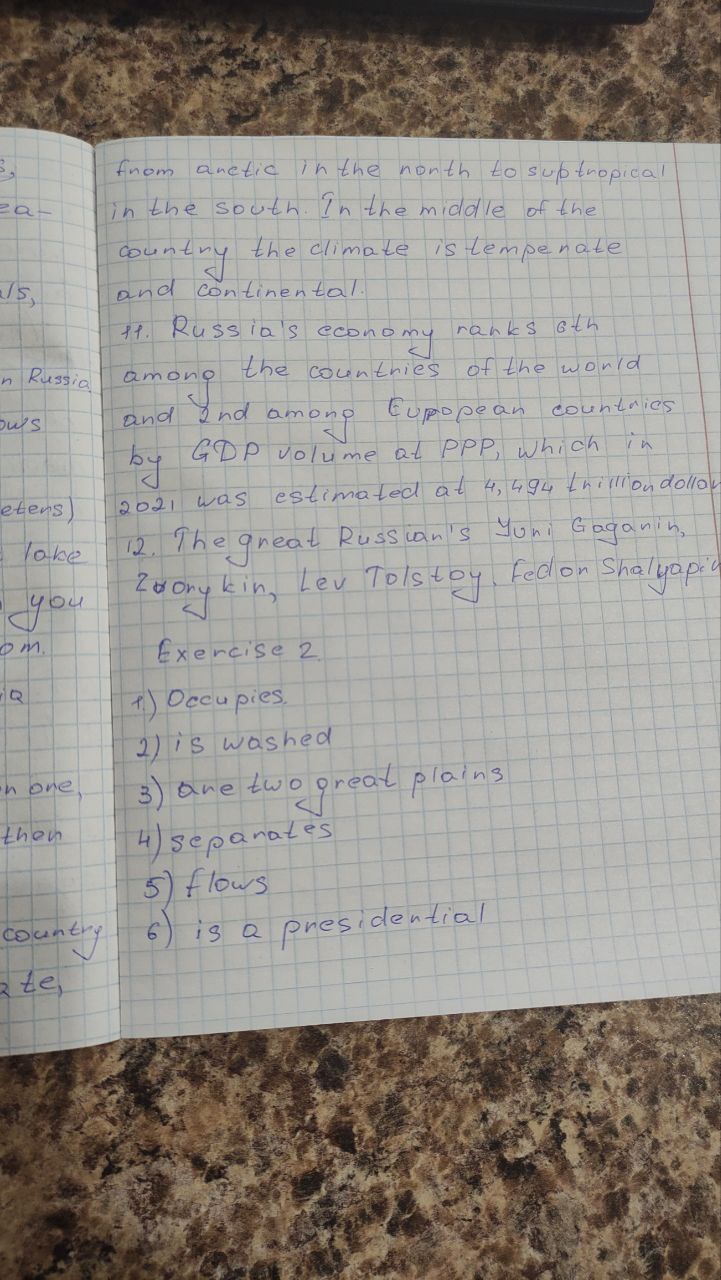 s,
ea-
als,
n Russia
ows
eters)
lake
you
om.
ia
n one,
than
country
ate,
from arctic in the north to subtropical
in the south. In the middle of the
country the climate is temperate
and continental.
11. Russia's economy ranks 6th
among the countries of the world
and 2nd among European countries
by GDP volume at PPP, which in
2021 was estimated at 4,494 trillion dollar
12. The great Russian's Yuri Gagarin,
Zvorykin, Lev Tolstoy, Fedor Shalyapin
Exercise 2
1) Occupies.
2) is washed
3) are two great plains
4) separates
5) flows
6) is a presidential